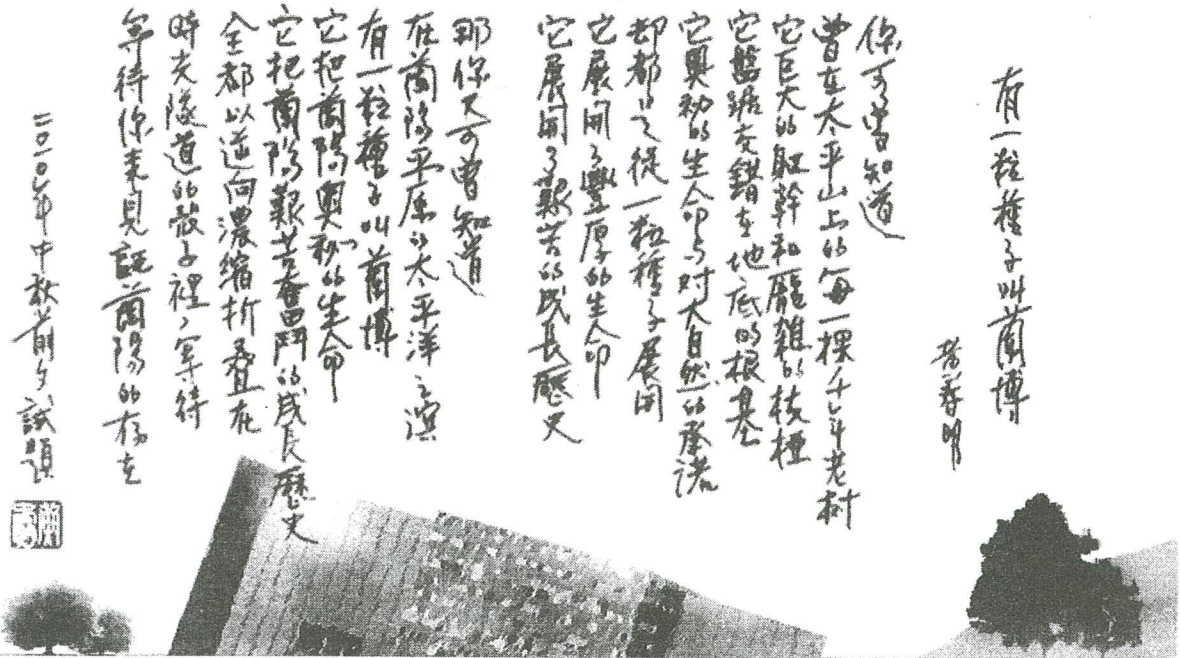 有一粒種子叫蘭博
黃春明
你可曾知道
曾在太平山上的每一棵千年老樹
它巨大的軀幹和龐雜的枝椏
它盤踞交錯在地底的根基
它奧秘的生命與對大自然的承諾
卻都是從一粒種子展開
它展開了豐厚的生命
它展開了艱苦的成長歷史
那你又可曾知道
在蘭陽平原的太平洋之濱
有一粒種子叫蘭博
它把蘭陽奧秘的生命
它把蘭陽艱苦奮鬥的成長歷史
全都以逆向濃縮折疊在
時光隧道的殼子裡、等待
等待你來見証蘭陽的存在
二〇一〇年中秋前夕試題